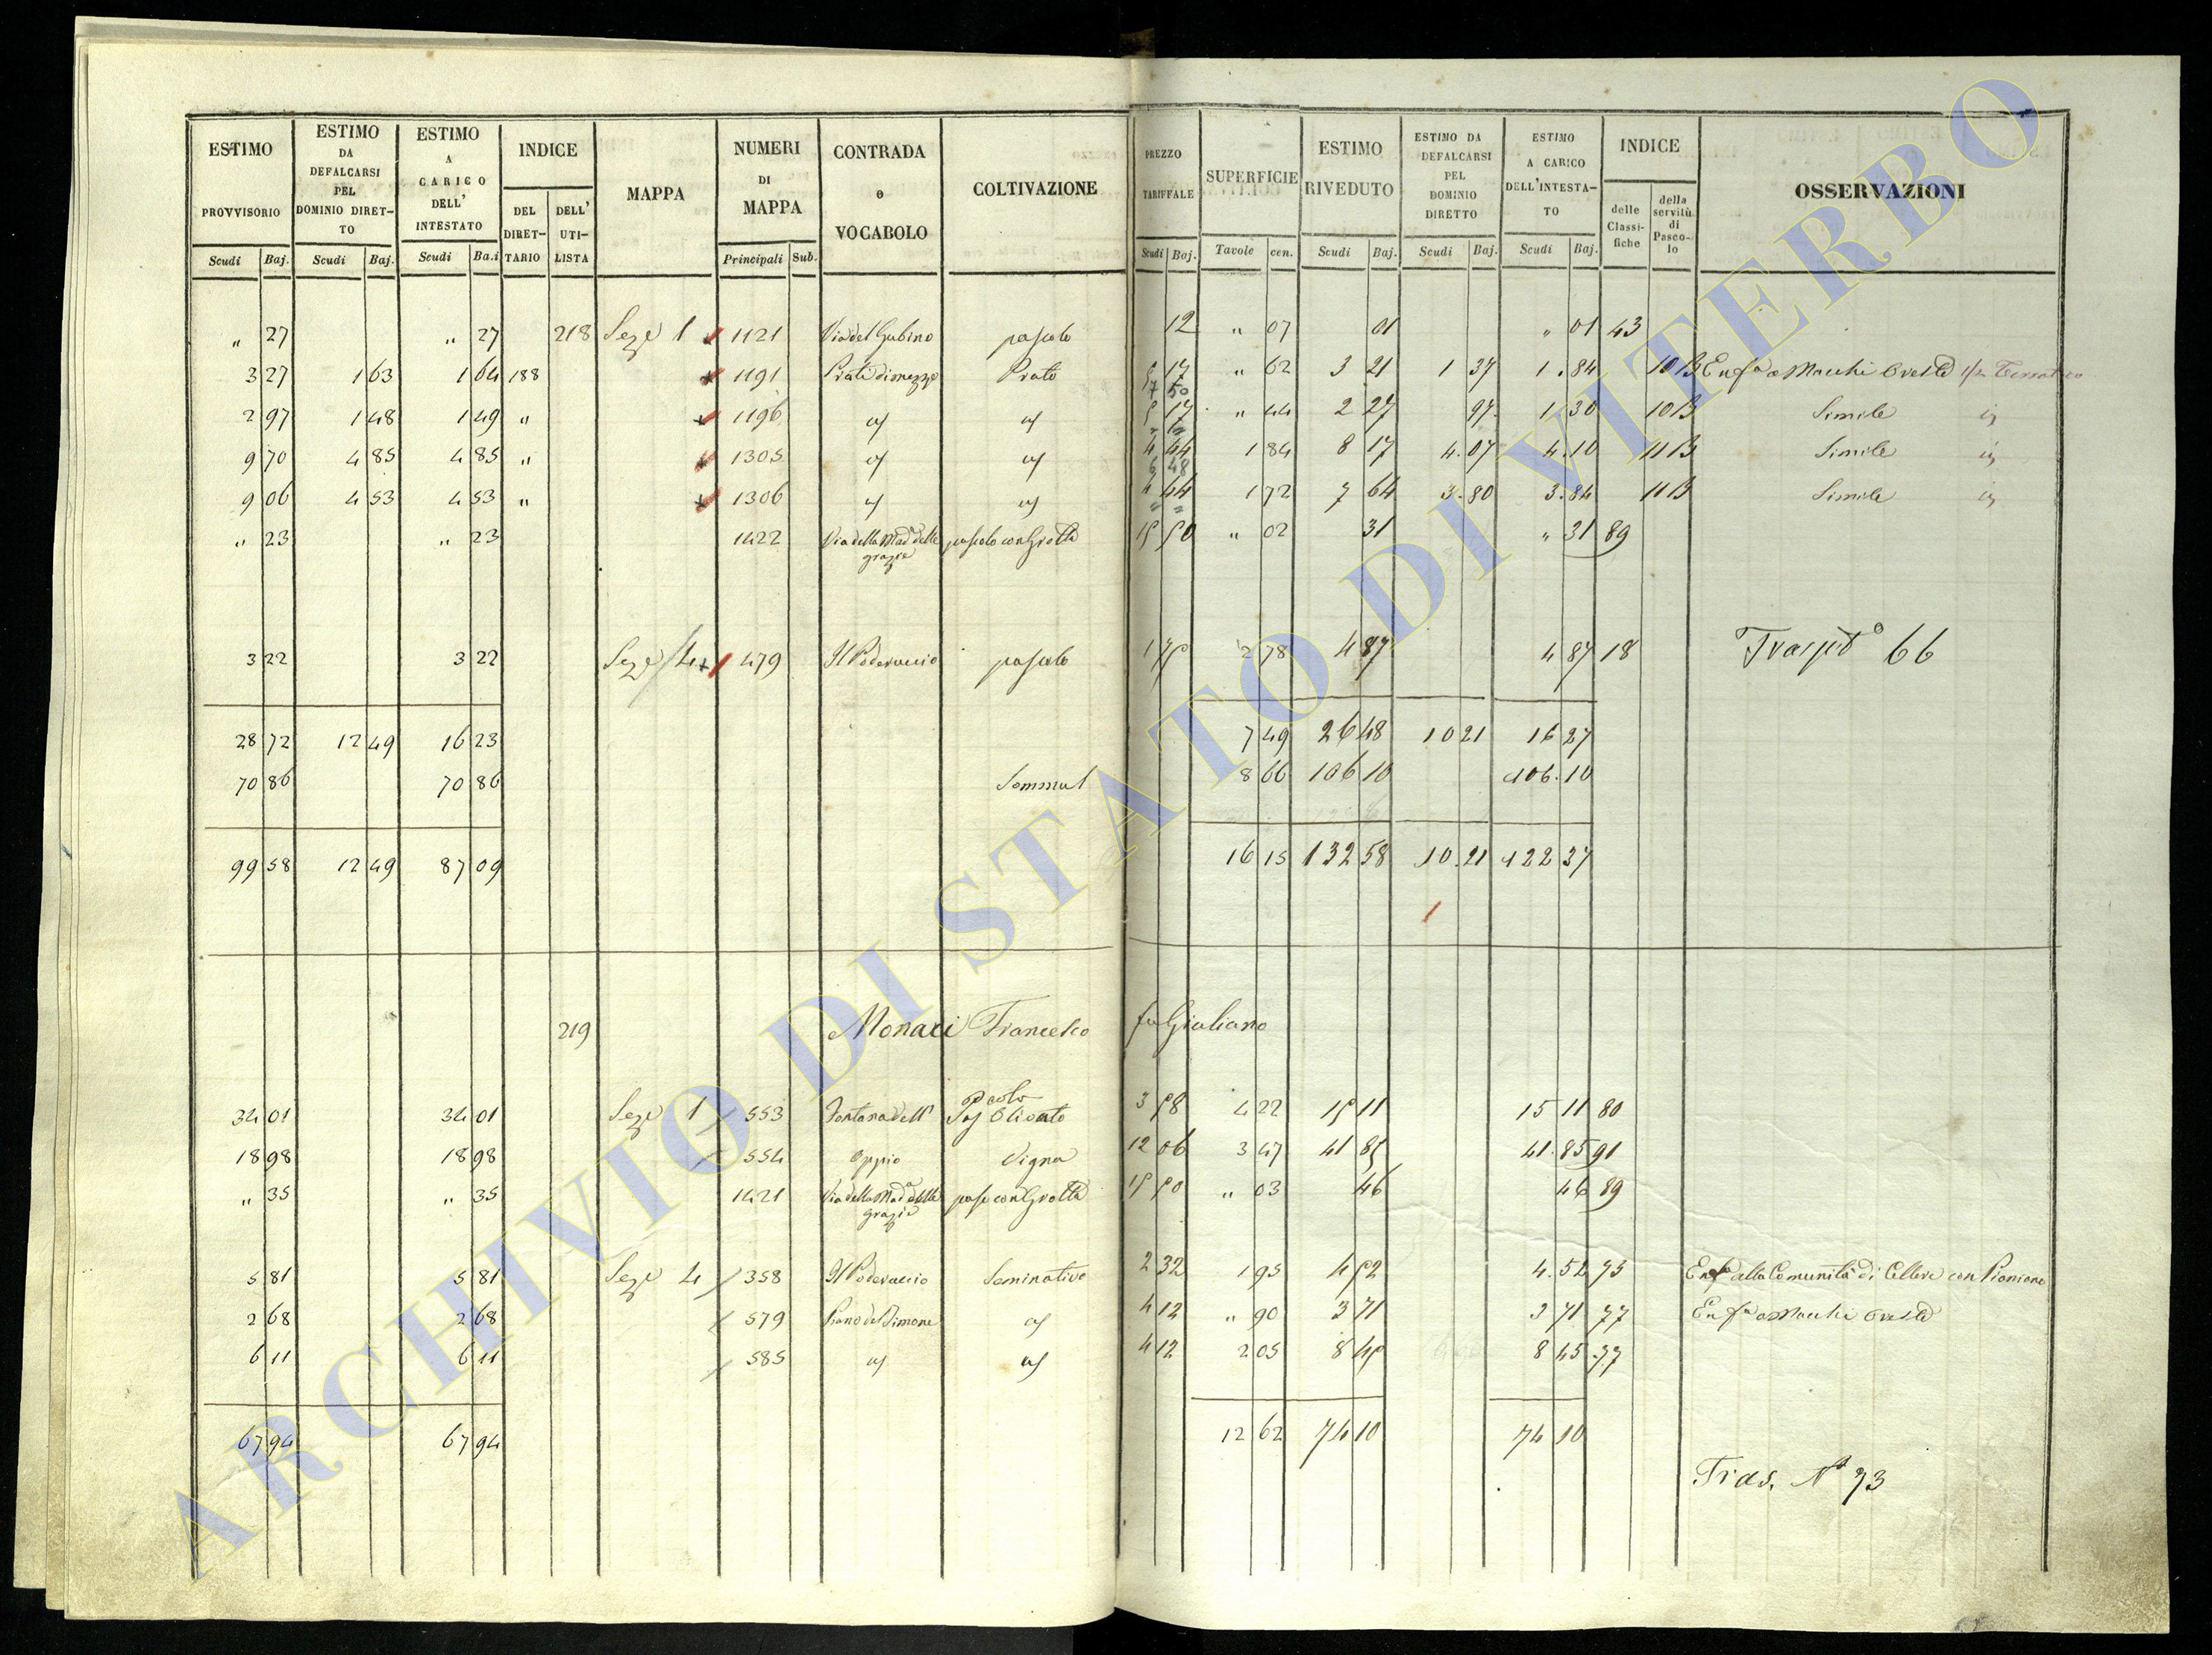 ESTIMO PROVVISORIO | ESTIMO DA DEFALCARSI PEL DOMINIO DIRETTO | ESTIMO A CARICO DELL' INTESTATO | INDICE | MAPPA | NUMERI DI MAPPA | CONTRADA e VOCABOLO | COLTIVAZIONE | PREZZO TARIFFALE | SUPERFICIE | ESTIMO RIVEDUTO | ESTIMO DA DEFALCARSI PEL DOMINIO DIRETTO | ESTIMO A CARICO DELL'INTESTATO | INDICE | OSSERVAZIONI
DEL DIRETTARIO | DELL' UTILISTA | delle Classifiche | della servitù di Pascolo
Scudi | Baj. | Scudi | Baj. | Scudi | Ba.i | Principali | Sub. | Scudi | Baj. | Tavole | cen. | Scudi | Baj. | Scudi | Baj. | Scudi | Baj.
" 27 | " 27 | 218 | Seze 1 | 1121 | Via del Gubino | pascolo | 12 | " 07 | 01 | " 01 | 43
3 27 | 1 63 | 1 64 | 188 | 1191 | Prati di mezzo | Prato | 5 17 | " 62 | 3 21 | 1 37 | 1.84 | 10 B | Enfa a Macchi Oreste
2 97 | 1 48 | 1 49 | " | 1196 | 5 17 | " 44 | 2 27 | 97 | 1 30 | 10 B | Simile
9 70 | 4 85 | 4 85 | " | 1305 | 4 44 | 1 84 | 8 17 | 4.07 | 4.10 | 11 B | Simile
9 06 | 4 53 | 4 53 | " | 1306 | 4 44 | 1 72 | 7 64 | 3.80 | 3.84 | 11 B | Simile
" 23 | " 23 | 1422 | Via della Mada delle grazie | pascolo con Grotta | 15 50 | " 02 | 31 | " 31 | 89
3 22 | 3 22 | Seze 4 | 479 | Il Poderuccio | pascolo | 1 75 | 2 78 | 4 87 | 4 87 | 18 | Traspto 66
28 72 | 12 49 | 16 23 | 7 49 | 26 48 | 10 21 | 16 27
70 86 | 70 86 | 8 66 | 106 10 | 106.10
99 58 | 12 49 | 87 09 | 16 15 | 132 58 | 10.21 | 122 37
219 | Monaci Francesco fu Giuliano
34 01 | 34 01 | Seze 1 | 553 | Fontana dell' | Olivato | 3 58 | 4 22 | 15 11 | 15 11 | 80
18 98 | 18 98 | 554 | Oppio | Vigna | 12 06 | 3 47 | 41 85 | 41.85 | 91
" 35 | " 35 | 1421 | Via della Mada delle grazie | pasc con Grotta | 15 50 | " 03 | 46 | 46 | 89
5 81 | 5 81 | Seze 4 | 358 | Il Poderuccio | Seminativo | 2 32 | 1 95 | 4 52 | 4.52 | 75 | Enfa alla Comunità di Cellere con Pianiano
2 68 | 2 68 | 579 | Piano del Simone | 4 12 | " 90 | 3 71 | 3 71 | 77 | Enfa a Macchi Oreste
6 11 | 6 11 | 585 | 4 12 | 2 05 | 8 45 | 8 45 | 77
67 94 | 67 94 | 12 62 | 74 10 | 74 10
Tras. No 73
ARCHIVIO DI STATO DI VITERBO